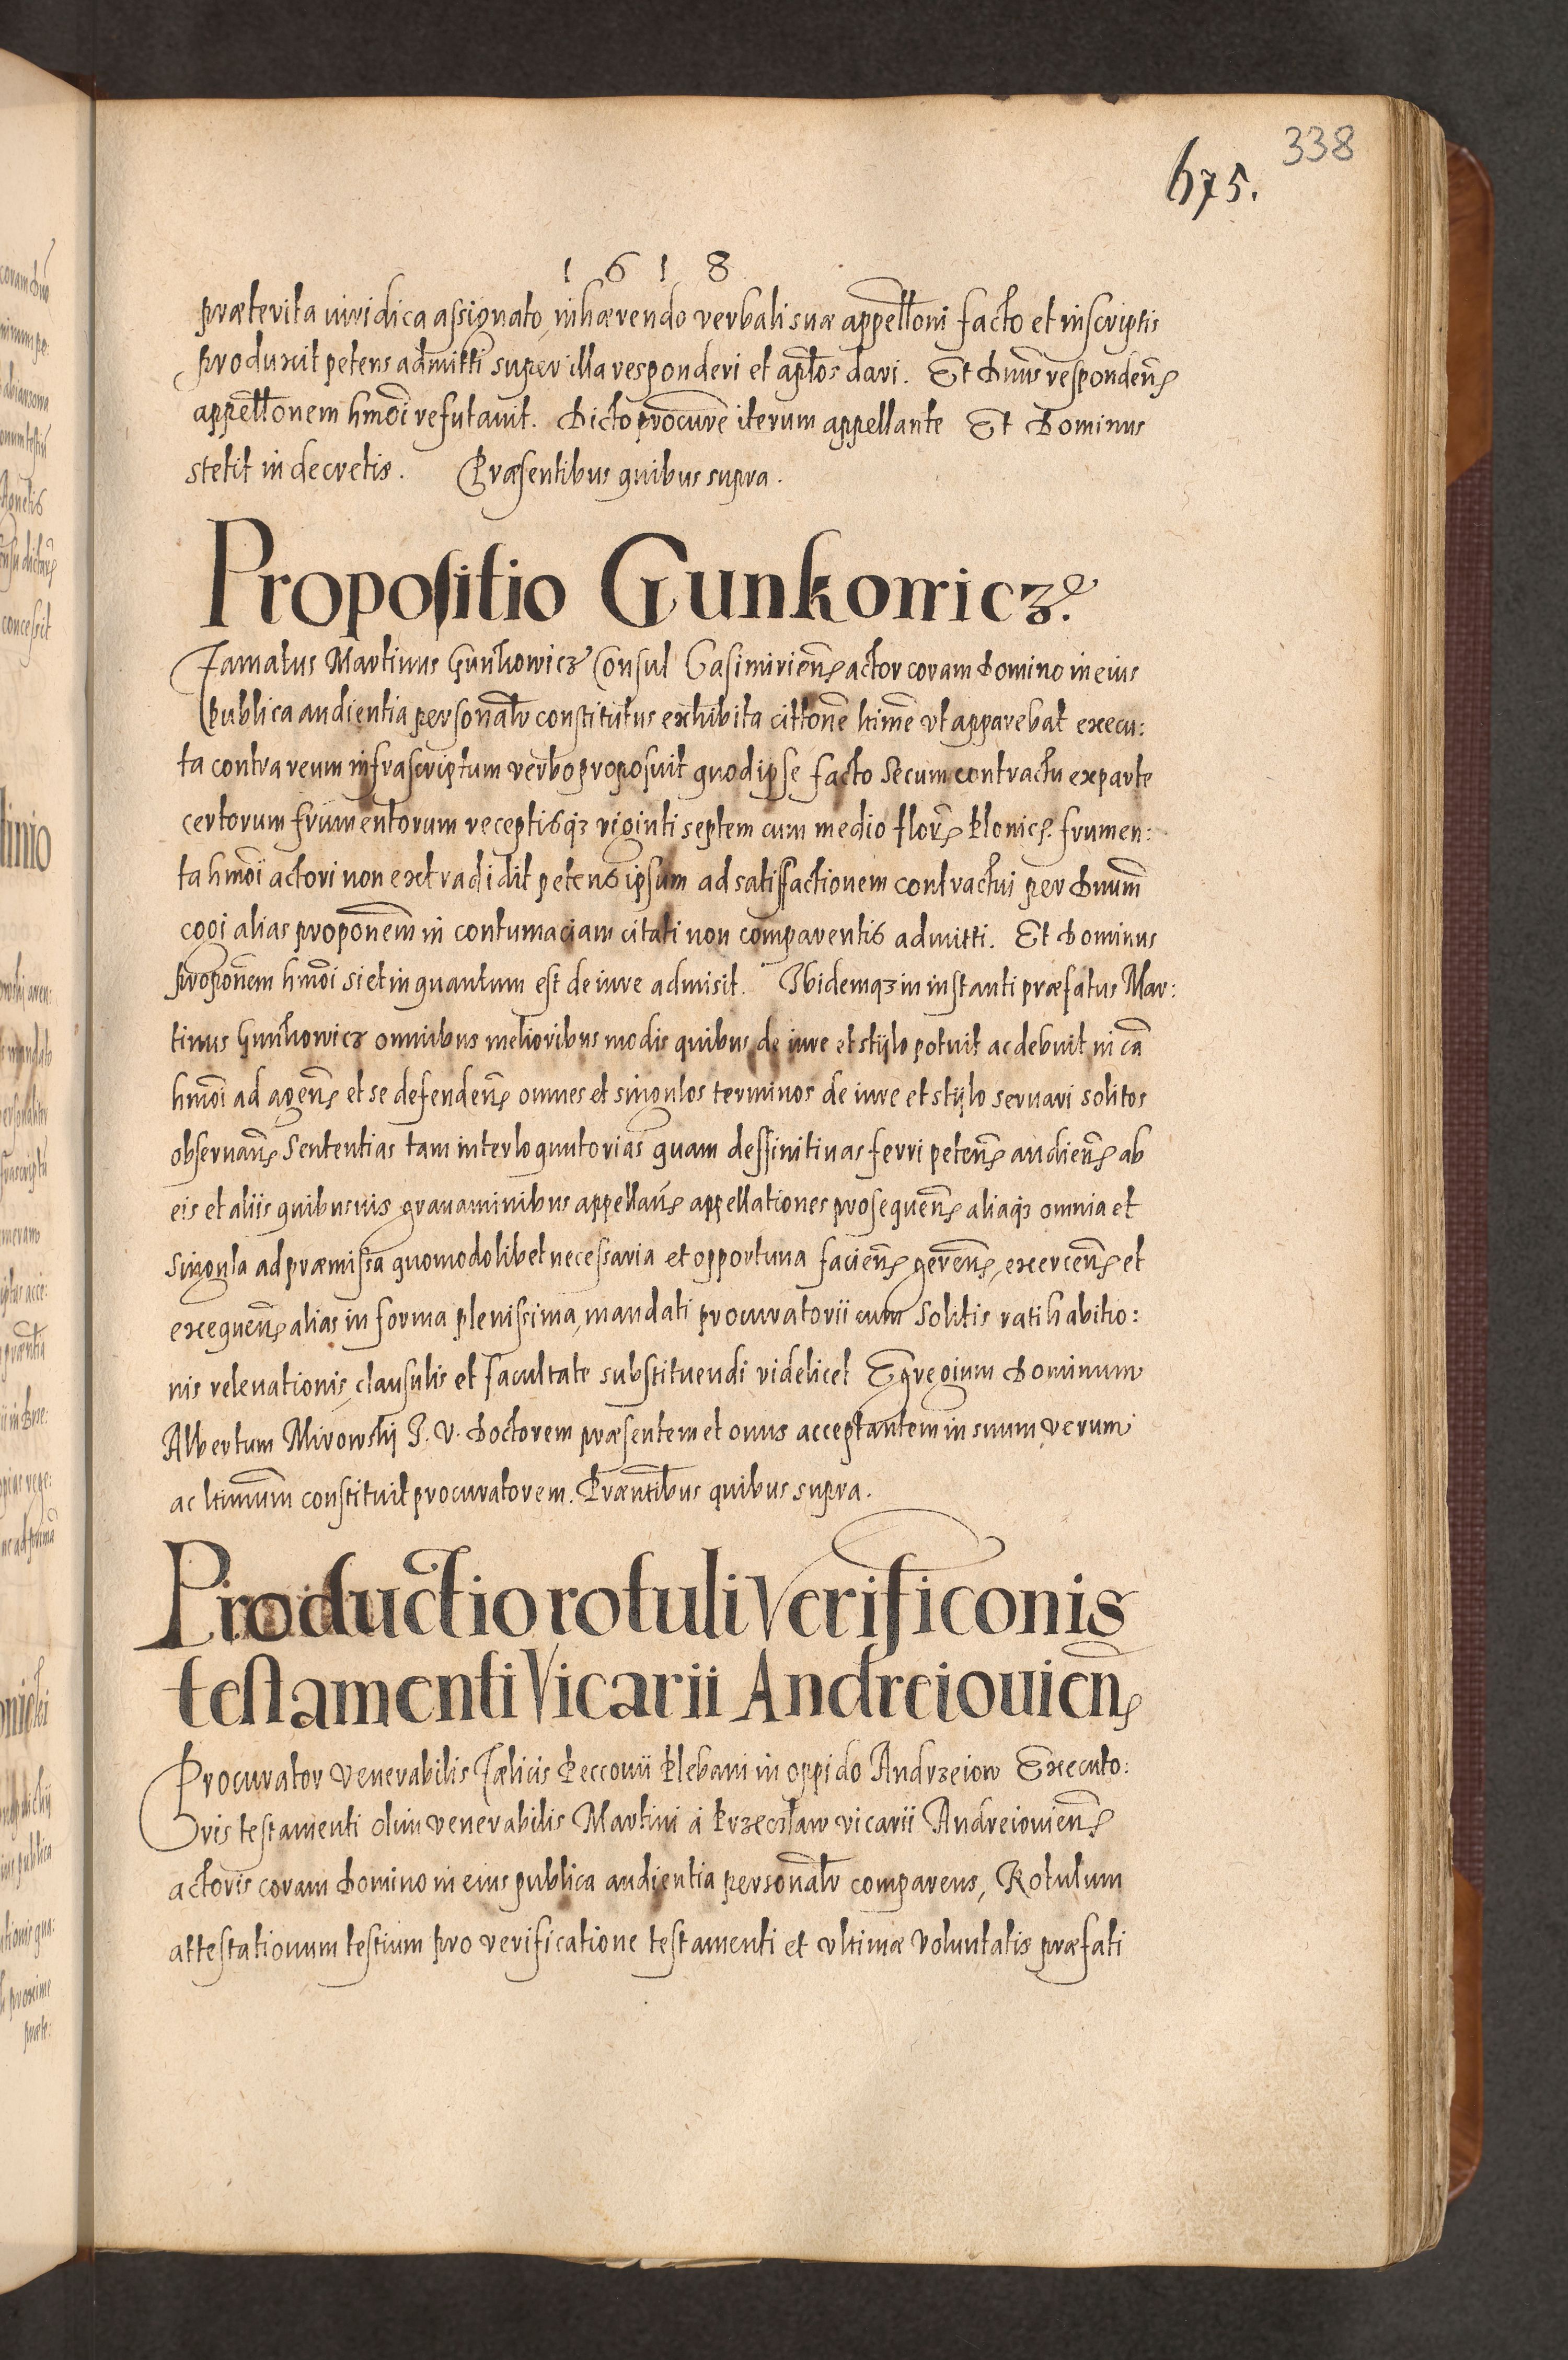 338
675.
1618
præterita iuridica assignato, inhærendo verbali suæ appellõni facto et in scriptis
produxit petens admitti super illa responderi et aplõs dari. Et Dnũs respondeñ
appellõnem hmõi refutauit. Dicto procure iterum appellante Et Dominus
stetit in decretis. Præsentibus quibus supra.
Propositio Gunkowicz.
Famatus Martinus Gunkowicz Consul Casimirieñ actor coram Domino in eius
publica audientia personalr constitutus exhibita cittõne ltime vt apparebat execu:
ta contra reum infrascriptum verbo proposuit quod ipse facto secum contractu ex parte
certorum frumentorum receptisq3 viginti septem cum medio flor. Plonic. frumen:
ta hmõi actori non extradidit petens ipsum ad satisfactionem contractui per Dnum
cogi alias proponem in contumaciam citati non comparentis admitti. Et Dominus
proponem hmõi si et in quantum est de iure admisit. Ibidemq3 in instanti præfatus Mar:
tinus Gunkowicz omnibus melioribus modis quibus de iure et stylo potuit ac debuit in cã
hmõi ad ageñ et se defendeñ omnes et singulos terminos de iure et stylo seruari solitos
obseruañ sententias tam interloquutorias quam deffinitiuas ferri peteñ audieñ ab
eis et aliis quibusuis grauaminibus appellañ appellationes prosequeñ aliaq3 omnia et
singula ad præmissa quomodolibet necessaria et opportuna facieñ gereñ, exerceñ et
exequeñ alias in forma plenissima, mandati procuratorii cum solitis ratihabitio:
nis releuationis, clausulis et facultate substituendi videlicet Egregium Dominum
Albertum Mirowski I. V. Doctorem præsentem et onus acceptantem in suum verum
ac ltimum constituit procuratorem. Præntibus quibus supra.
Productio rotuli verificonis
testamenti Vicarii Andreiouieñ
Procurator Venerabilis Fælicis Pecconii Plebani in oppido Andrzeiow Executo:
ris testamenti olim venerabilis Martini à Przecław vicarii Andreiouieñ
actoris coram Domino in eius publica audientia personalr comparens, Rotulum
attestationum testium pro verificatione testamenti et vltimæ voluntatis præfati